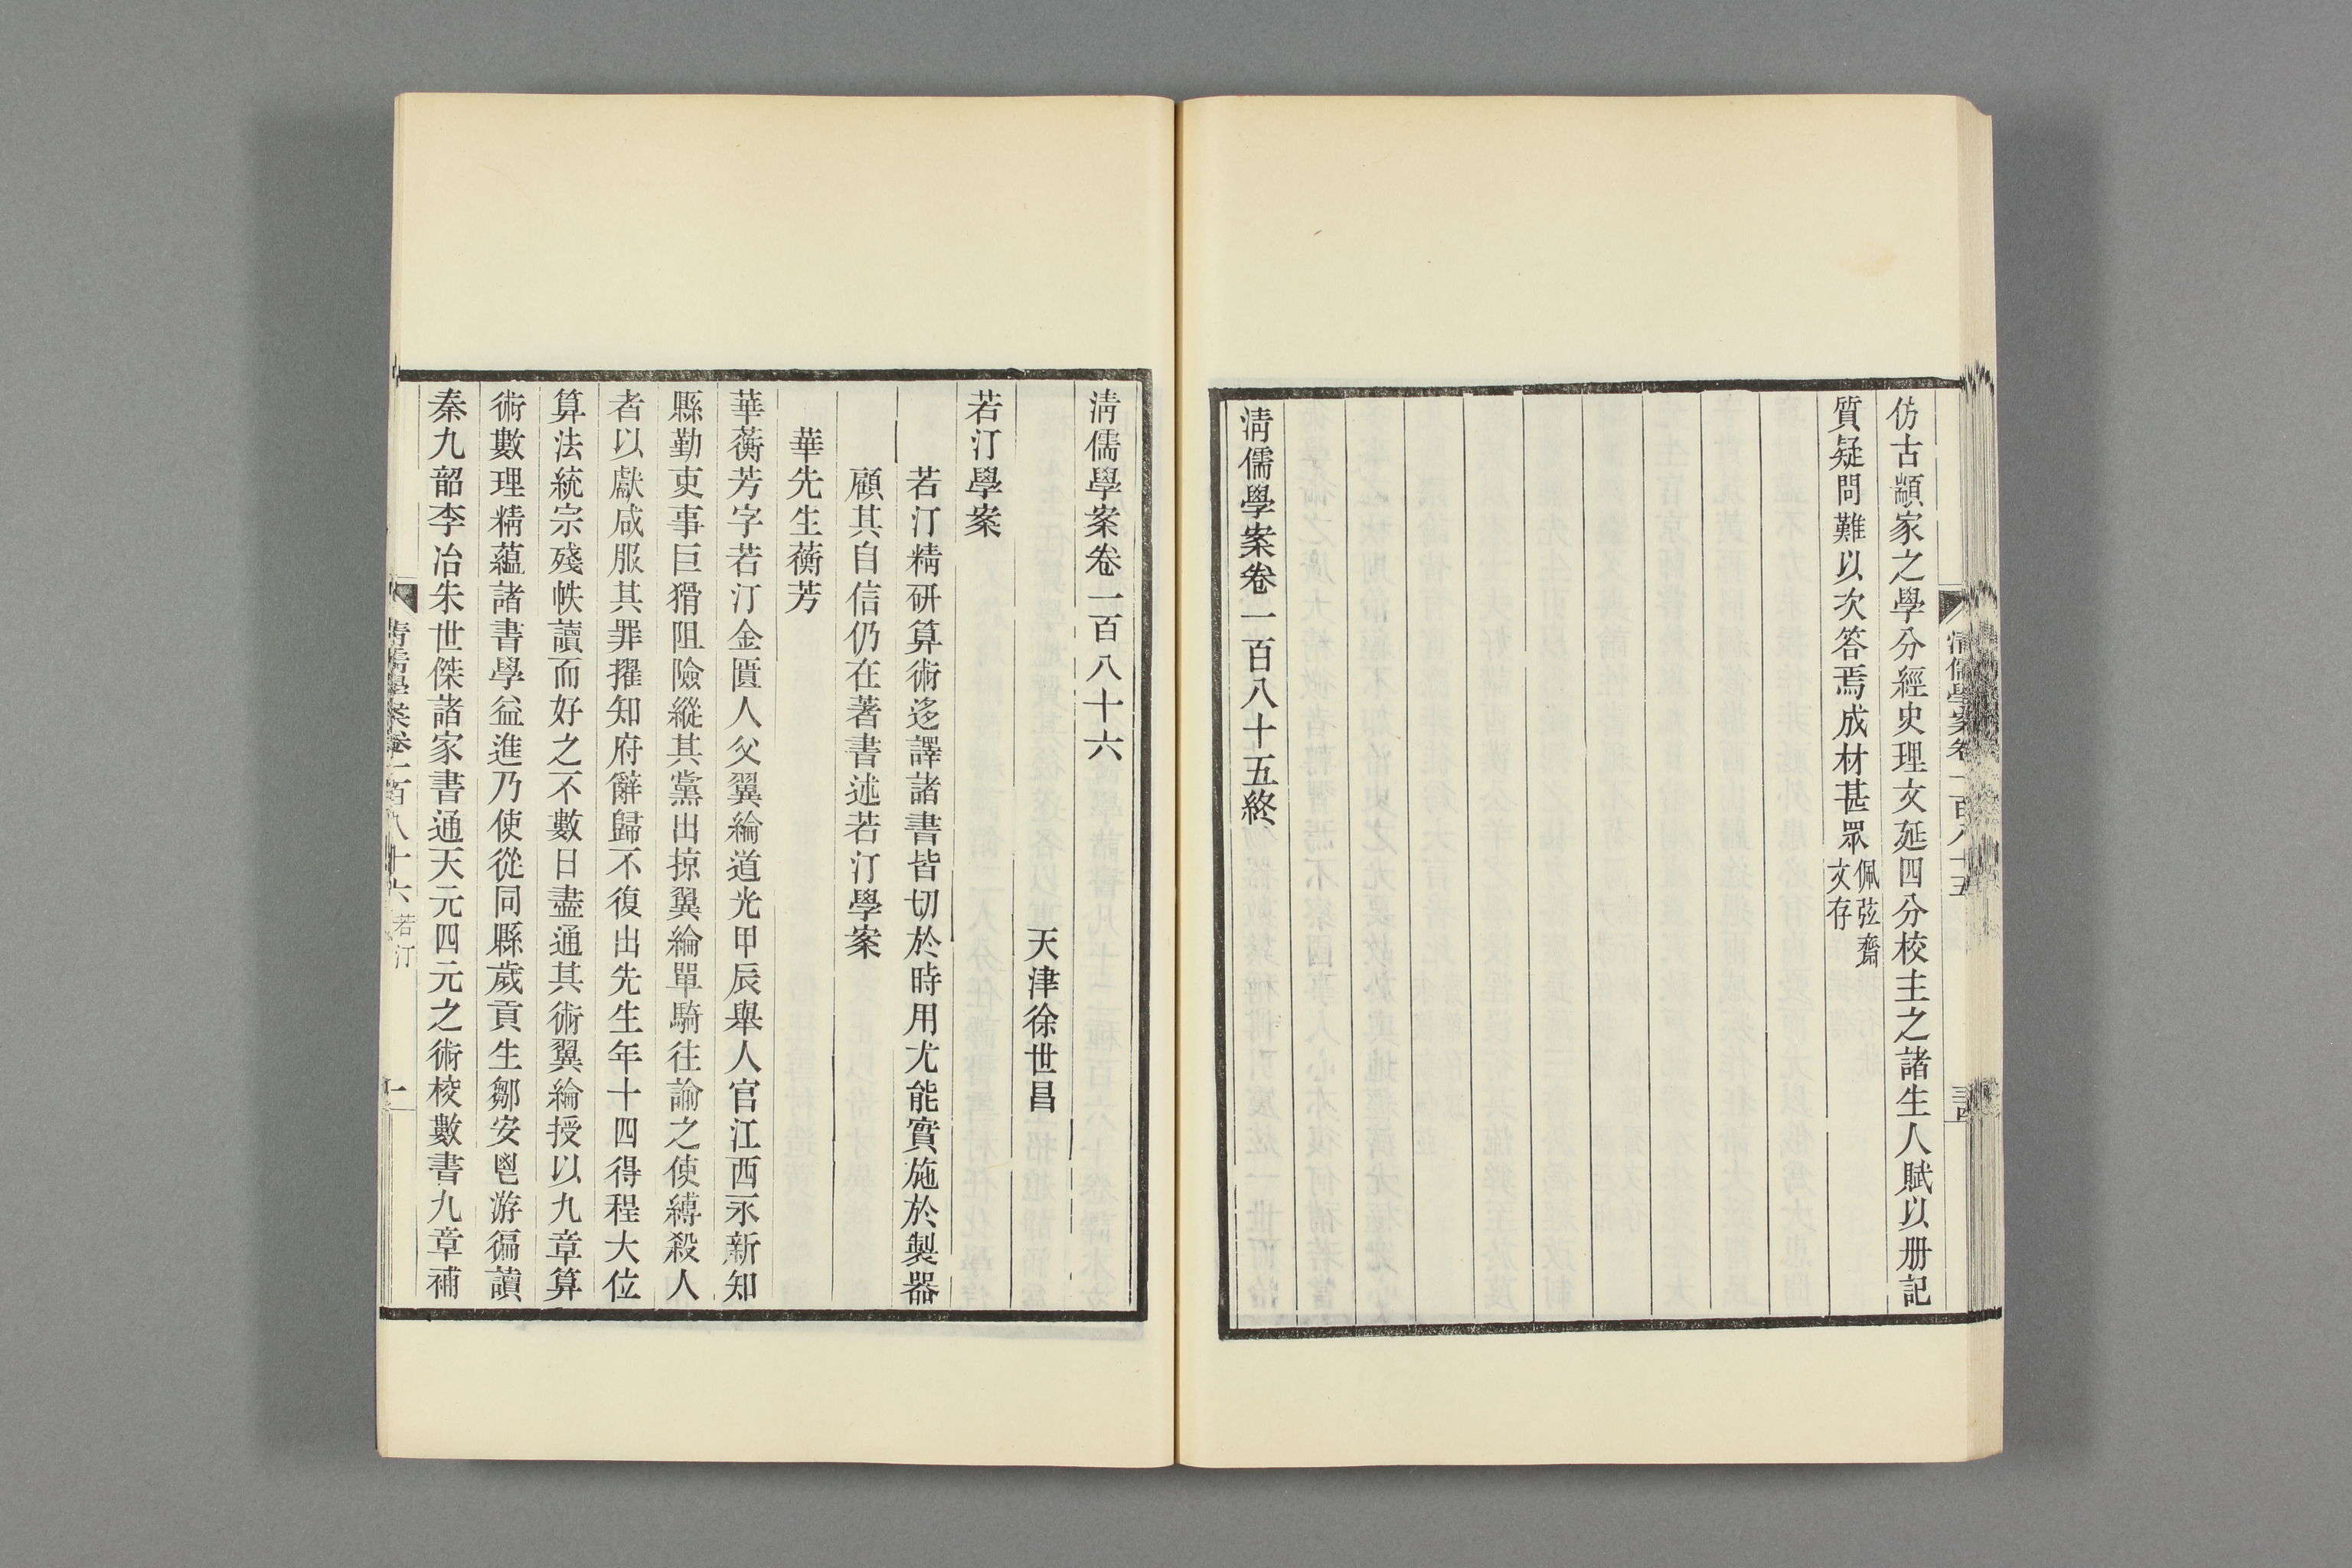 仿古顓家之學分經史理文延四分校主之諸生人賦以册記
質疑問難以次答焉成材甚眾佩弦齋文存
清儒學案卷一百八十五終
清儒學案卷一百八十五
清儒學案卷一百八十六
天津徐世昌
若汀學案
若汀精研算術迻譯諸書皆切於時用尤能實施於製器
顧其自信仍在著書述若汀學案
華先生蘅芳
華蘅芳字若汀金匱人父翼綸道光甲辰舉人官江西永新知
縣勤吏事巨猾阻險縱其黨出掠翼綸單騎往諭之使縛殺人
者以獻咸服其罪擢知府辭歸不復出先生年十四得程大位
算法統宗殘帙讀而好之不數日盡通其術翼綸授以九章算
術數理精蘊諸書學益進乃使從同縣歲貢生鄒安鬯游徧讀
秦九韶李冶朱世傑諸家書通天元四元之術校數書九章補
清儒學案卷一百八十六 若汀 一